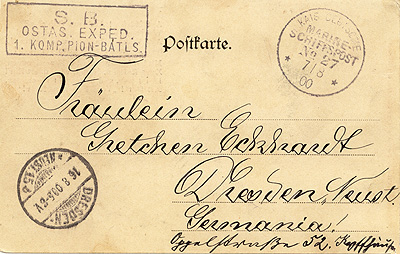 S. B.
OSTAS. EXPED.
1. KOMP. PION-BATLS.
Postkarte.
KAIS. DEUTSCHE
MARINE-
SCHIFFSPOST
No 27
7/8
00
Fräulein
Gretchen Eckhardt
Dresden, Neust.
Germania!
Oppelstraße 52.
DRESDEN
16.8.00.5-6V
* NEUST. 15 d